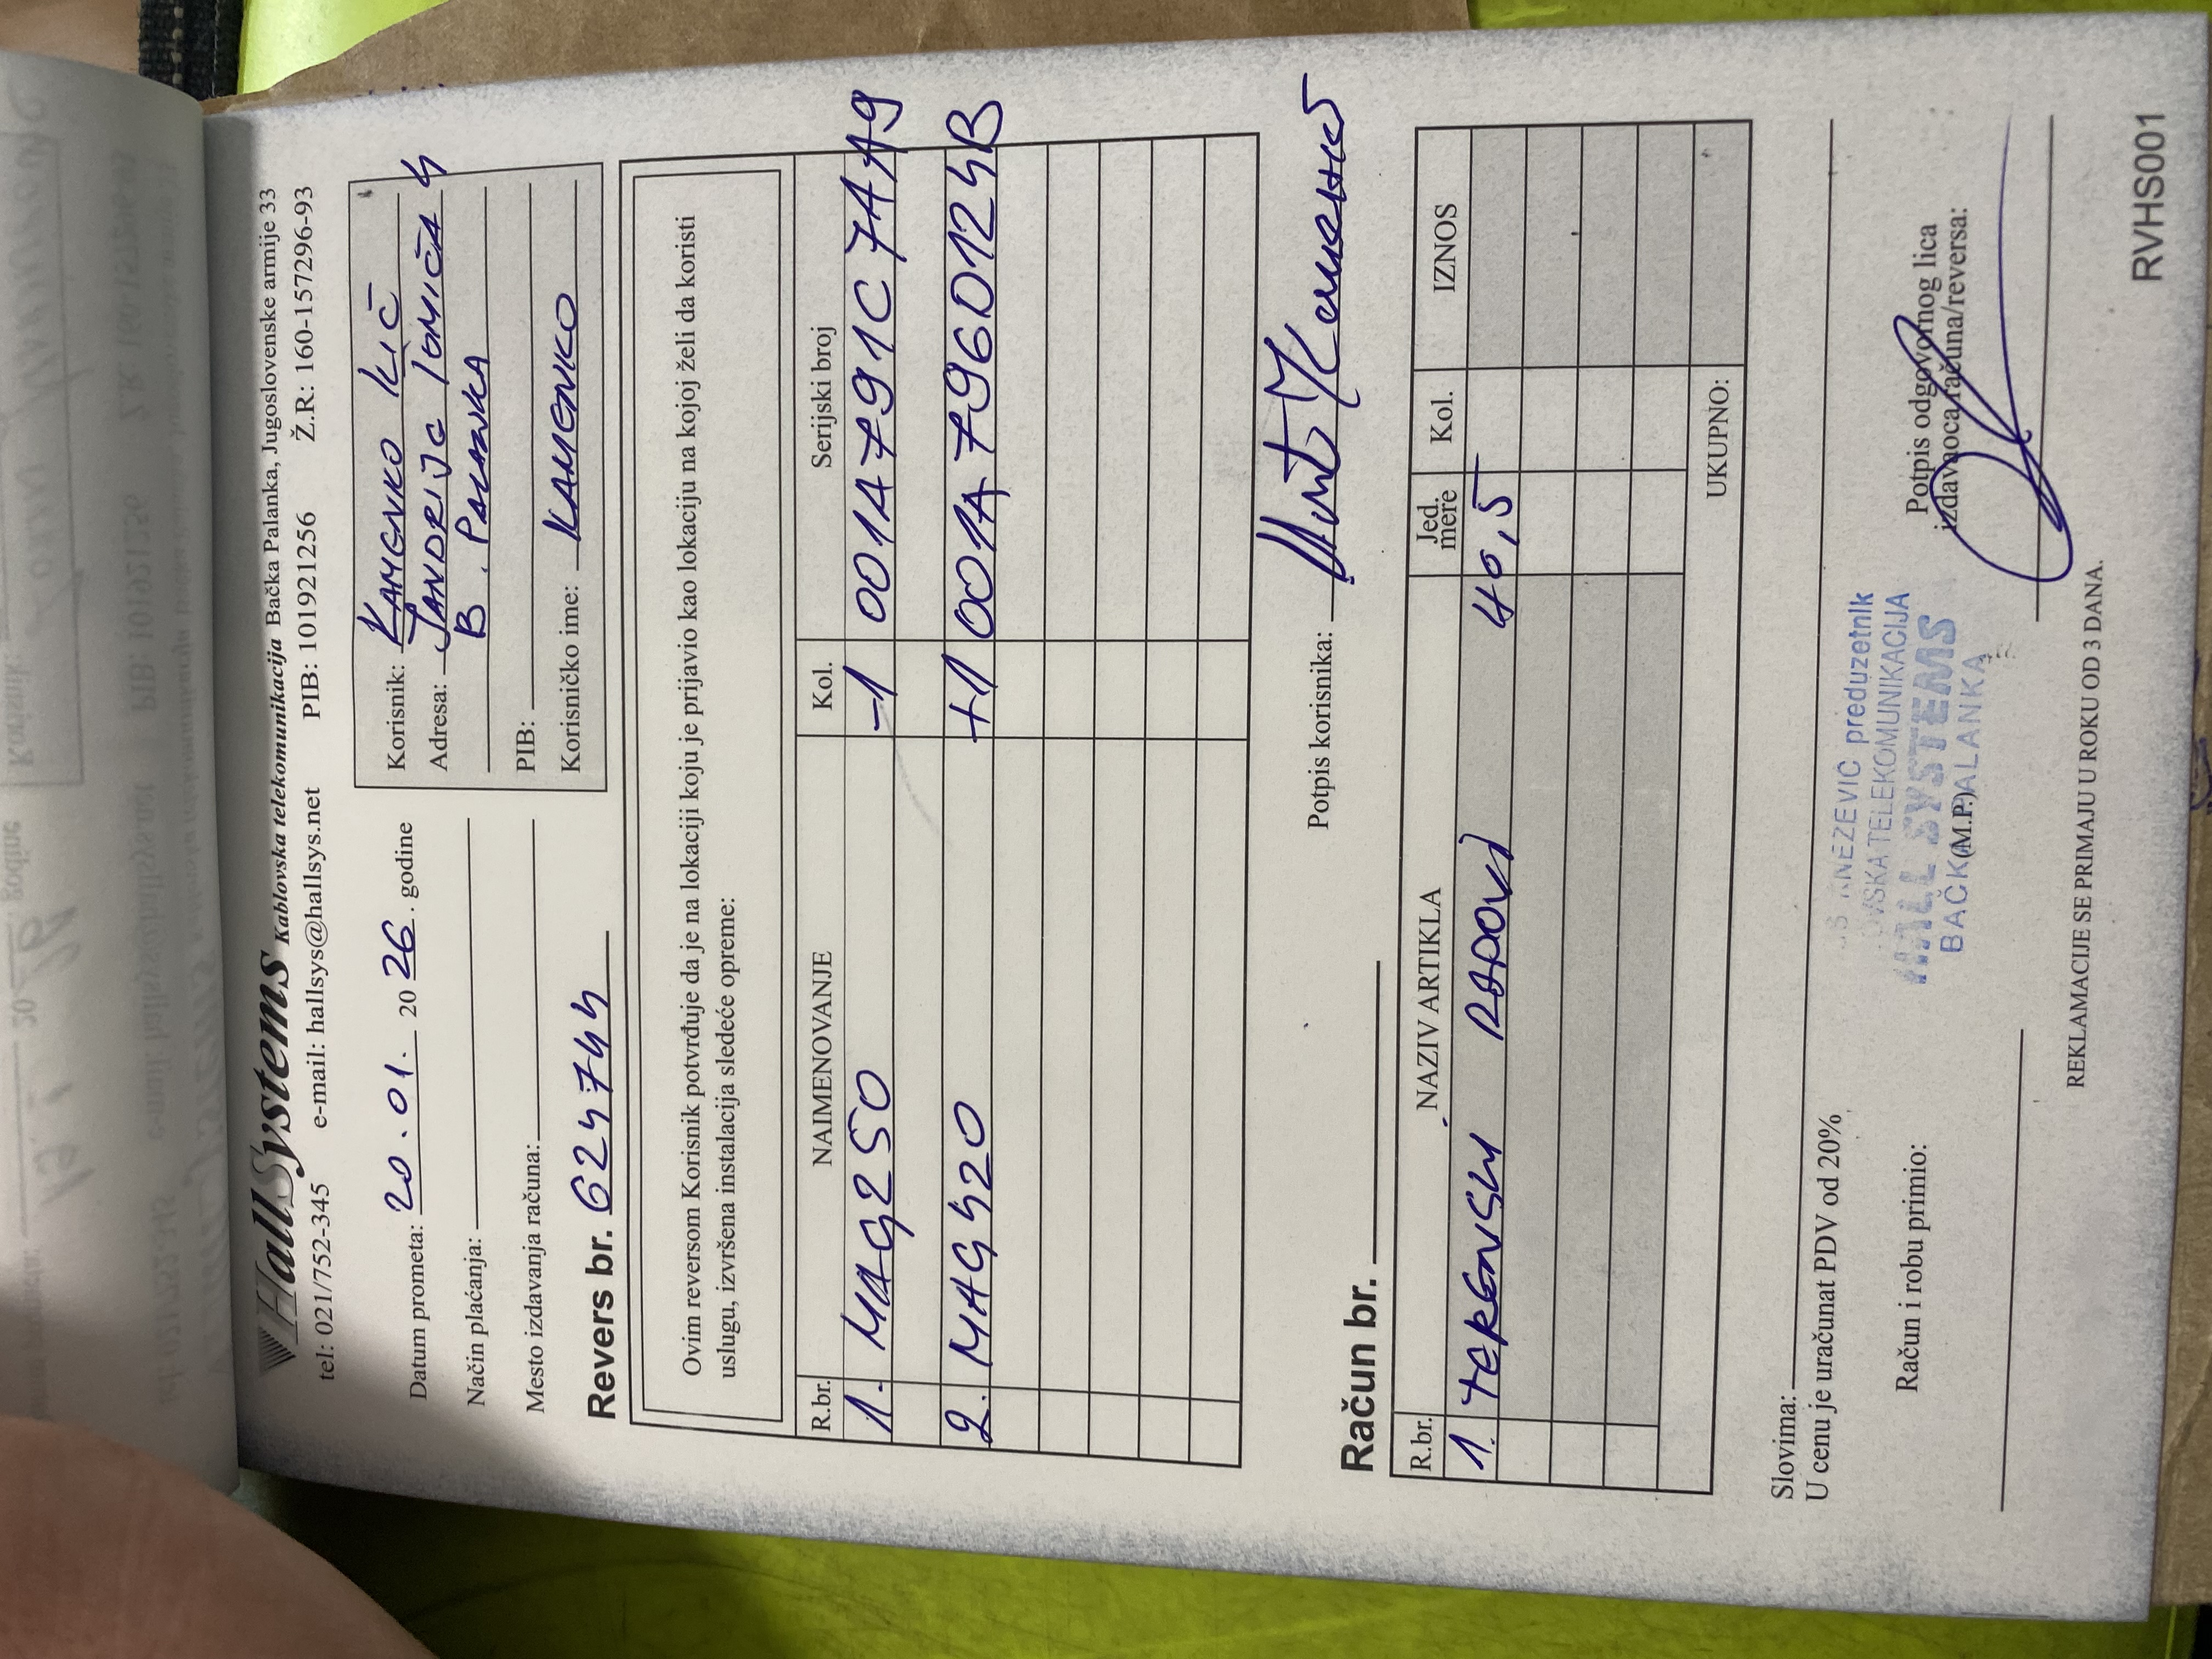 HallSystems Kablovska telekomunikacija Bačka Palanka, Jugoslovenske armije 33
tel: 021/752-345 e-mail: hallsys@hallsys.net PIB: 101921256 Ž.R: 160-157296-93
Datum prometa: 20.01. 2026. godine
Način plaćanja:
Mesto izdavanja računa:
Revers br. 624744
Korisnik: KAMENKO ILIĆ
Adresa: JANDRIJE TOMIĆA 4
B. PALANKA
PIB:
Korisničko ime: KAMENKO
Ovim reversom Korisnik potvrđuje da je na lokaciji koju je prijavio kao lokaciju na kojoj želi da koristi
uslugu, izvršena instalacija sledeće opreme:
R.br. NAIMENOVANJE Kol. Serijski broj
1. MAG250 -1 001A791C7AA9
2. MAG420 +1 001A796D124B
Potpis korisnika:
Račun br.
R.br. NAZIV ARTIKLA Jed. mere Kol. IZNOS
1. TERENSKI RADOVI 40,5
UKUPNO:
Slovima:
U cenu je uračunat PDV od 20%
Račun i robu primio:
KNEZEVIĆ preduzetnik
TELEKOMUNIKACIJA
HALL SYSTEMS
BAČKA PALANKA
(M.P.)
Potpis odgovornog lica
izdavaoca računa/reversa:
REKLAMACIJE SE PRIMAJU U ROKU OD 3 DANA.
RVHS001